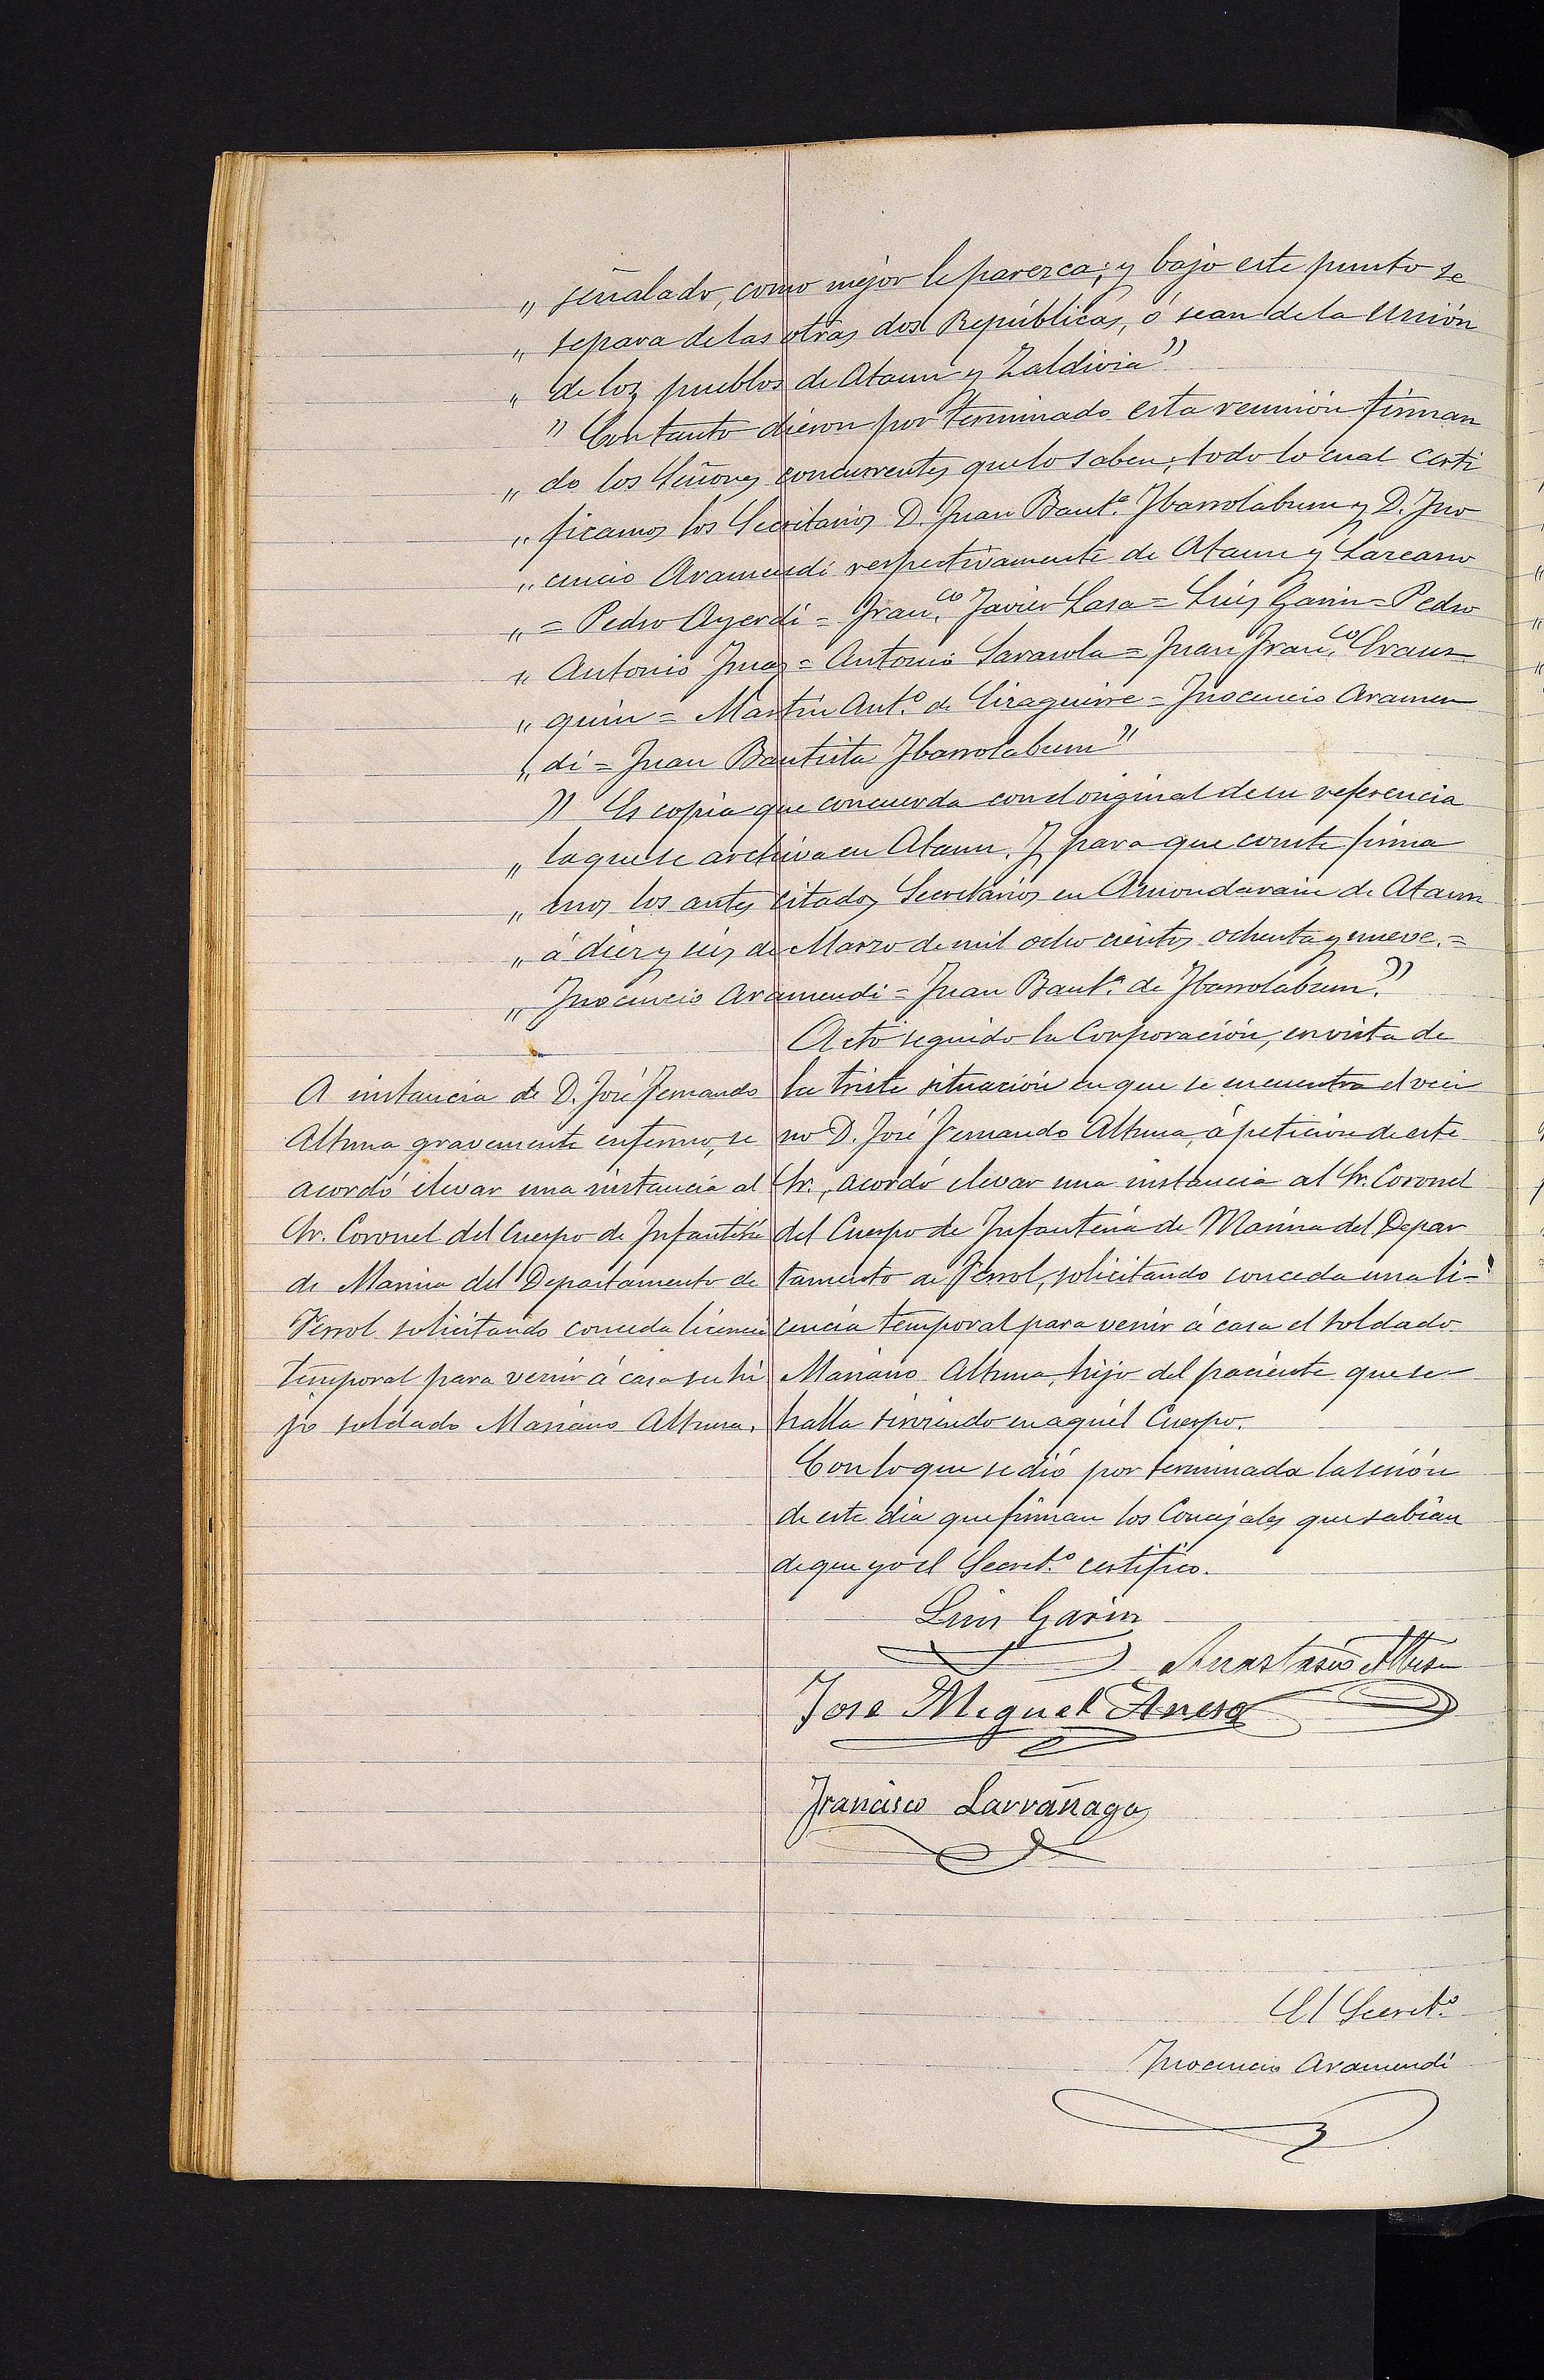 „ señalado, como mejor le parezca; y bajo este punto se
„ separa de las otras dos Repúblicas, ó sean de la Unión
„ de los pueblos de Ataun y Zaldivia"
" Con tanto dieron por terminado esta reunión firman
„ do los Señores concurrentes que lo saben; todo lo cual certi
„ ficamos los Secretarios D. Juan Baut.ª Ibarrolaburu y D. Ino
„ cencio Aramendi respectivamente de Ataun y Lazcano
„ = Pedro Ayerdi = Fran.co Javier Lasa = Luis Garin = Pedro
„ Antonio Imaz = Antonio Sarasola = Juan Fran.co Erauz
„ quin = Martin Ant.º de Eizaguirre = Inocencio Aramen
„ di = Juan Bautista Ibarrolaburu"
" Es copia que concuerda con el original de su referencia
„ la que se archiva en Ataun. Y para que conste firma
„ mos los antes citados Secretarios en Amondarain de Ataun
„ á diez y seis de Marzo de mil ocho cientos ochenta y nueve. =
„ Inocencio Aramendi = Juan Baut.ª de Ibarrolaburu."
A instancia de D. José Fernando
Altuna gravemente enfermo, se
acordó elevar una instancia al
Sr. Coronel del Cuerpo de Infantería
de Marina del Departamento de
Ferrol solicitando conceda licencia
temporal para venir á casa su hi
jo soldado Mariano Altuna.
Acto seguido la Corporación, en vista de
la triste situación en que se encuentra el veci
no D. José Fernando Altuna, á petición de este
Sr., acordó elevar una instancia al Sr. Coronel
del Cuerpo de Infantería de Marina del Depar
tamento de Ferrol, solicitando conceda una li-
cencia temporal para venir á casa el soldado
Mariano Altuna, hijo del paciente que se
halla sirviendo en aquél Cuerpo.
Con lo que se dió por terminada la sesión
de este dia que firman los Concejales que sabian
de que yo el Secret.º certifico.
Luis Garin
Anastasio Altuna
Jose Miguel
Francisco Larrañaga
El Secret.º
Inocencio Aramendi